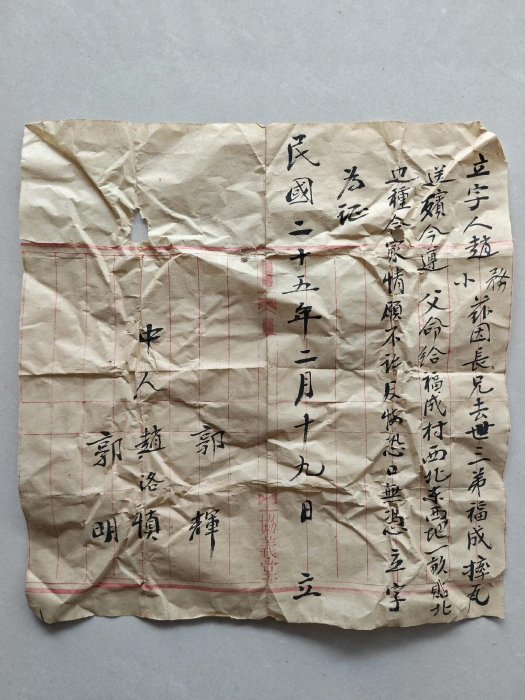 立字人趙小務茲因長兄去世三弟福成摔瓦
送殯今遵父命給福成村西北東西地一畝
邊種合家情願不許反悔恐口無憑立字
為証
民國二十五年二月十九日 立
郭輝
中人 趙洛楨
郭明